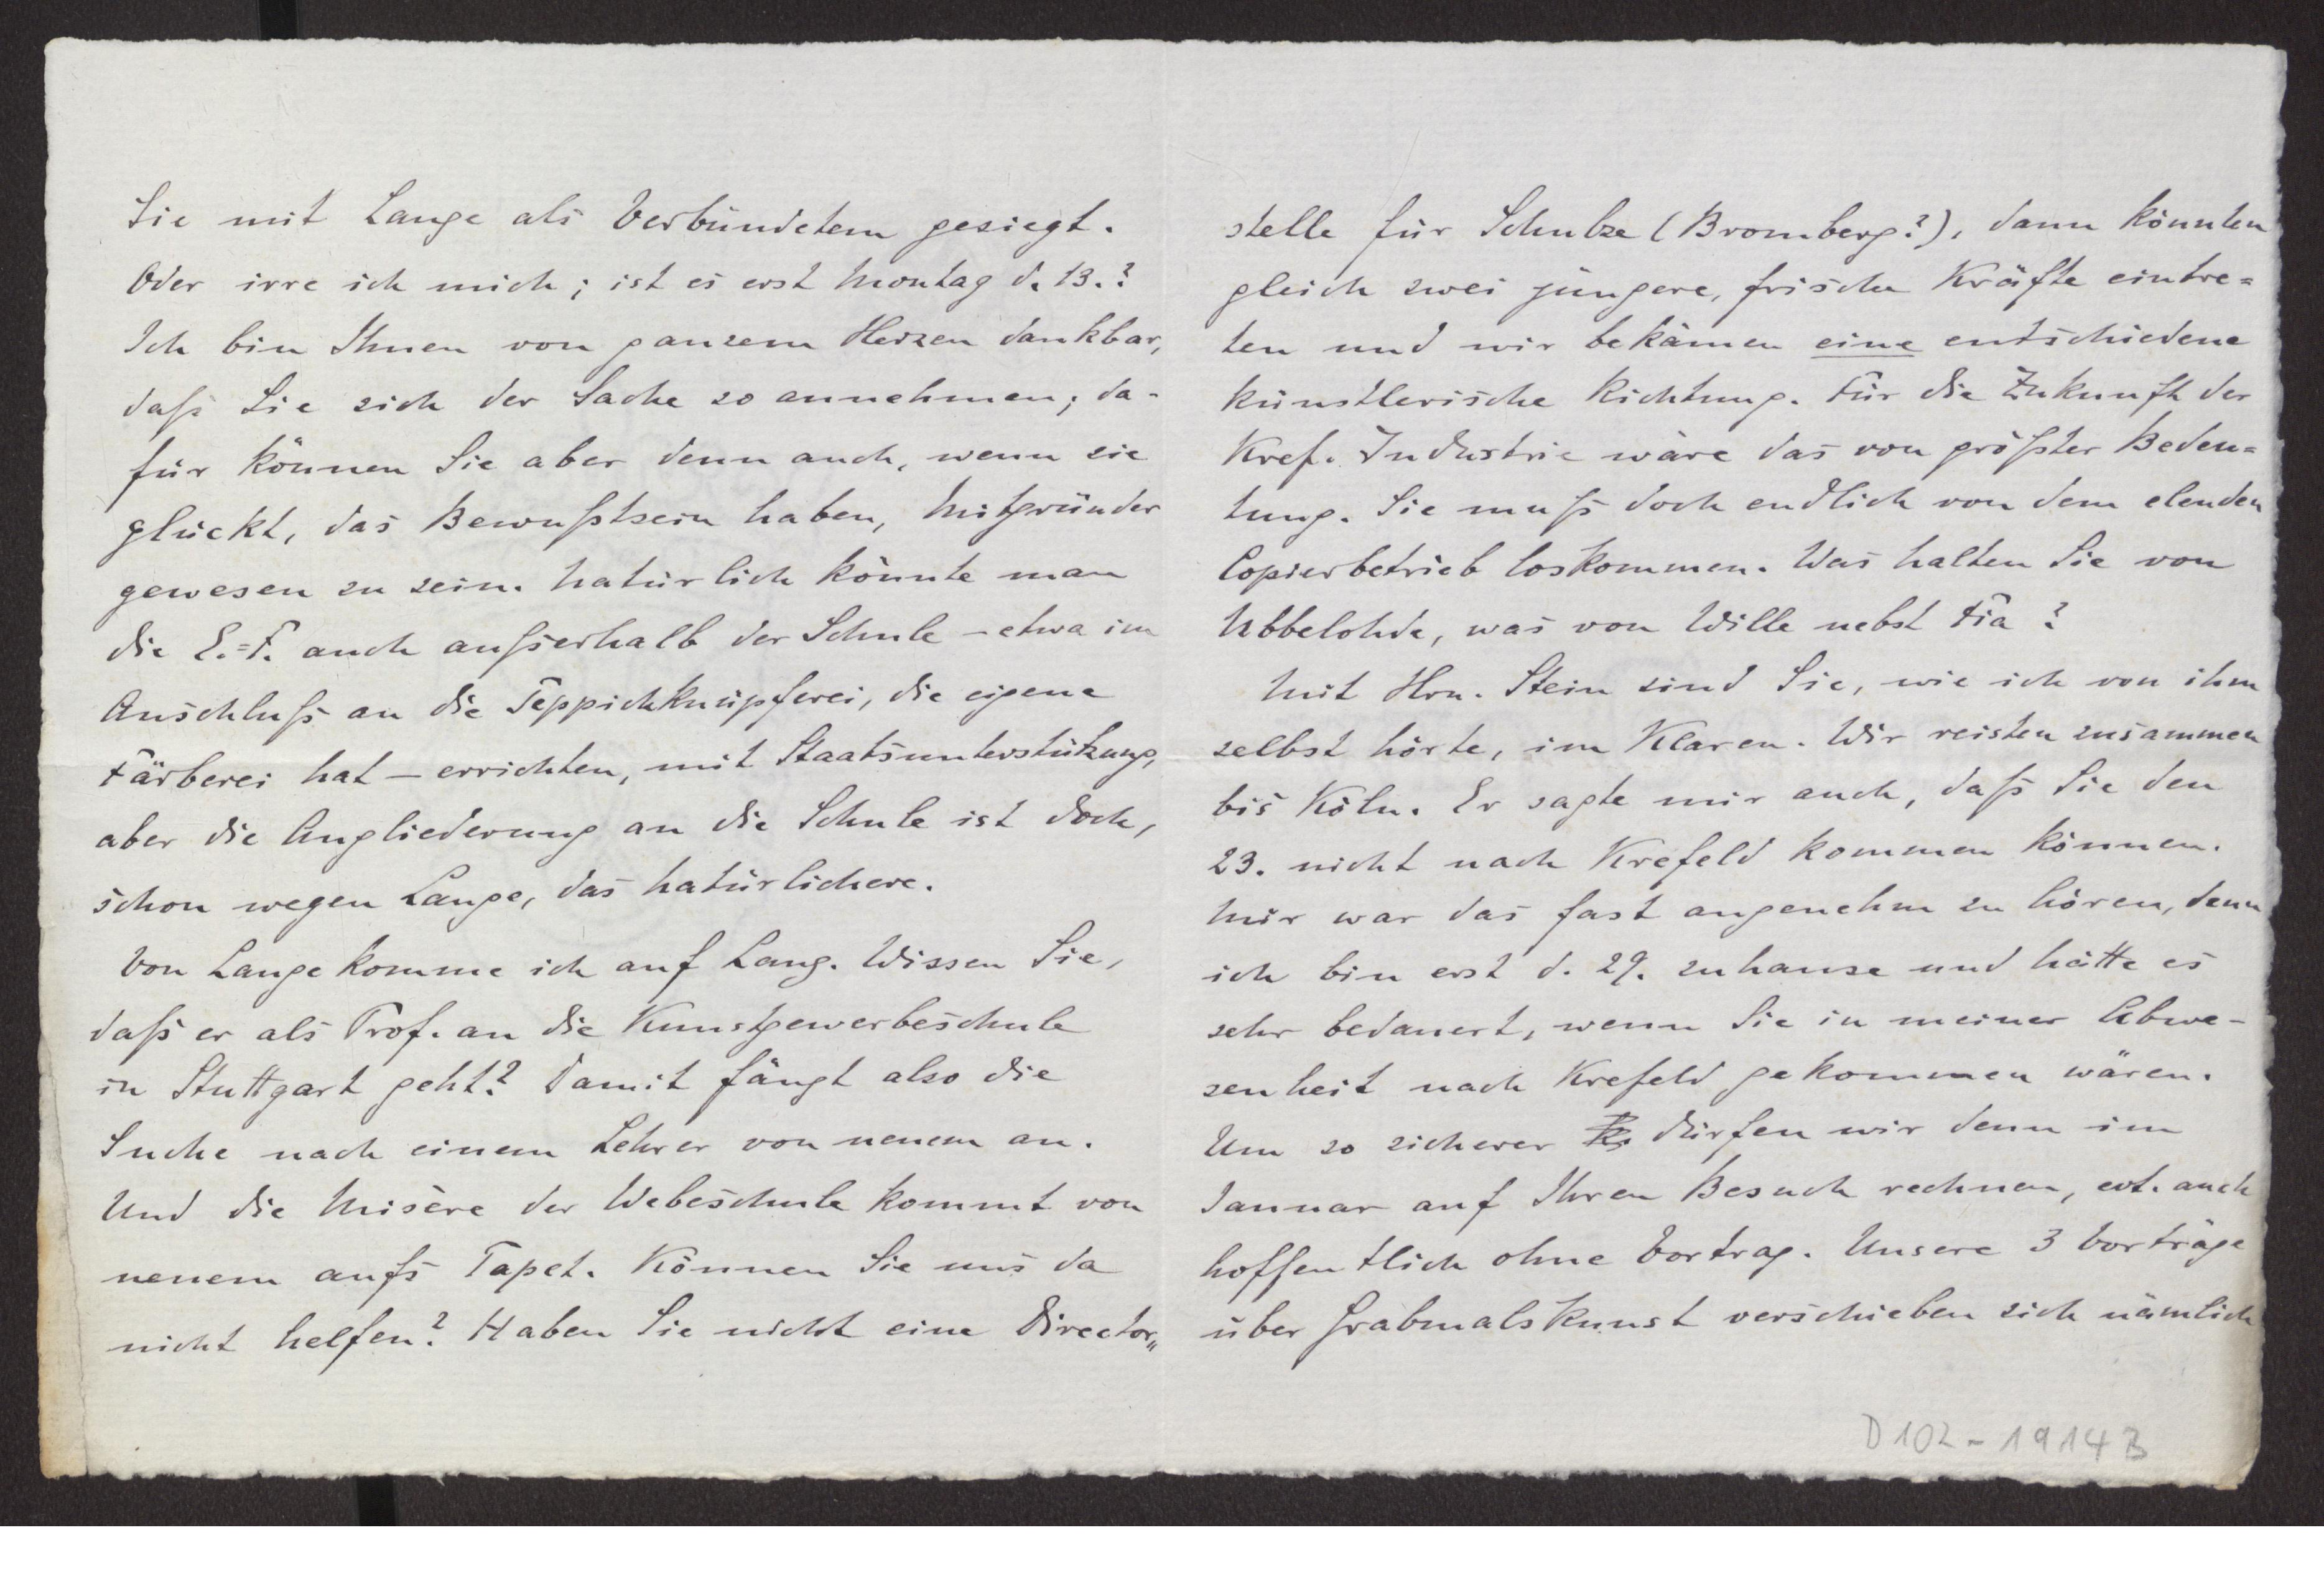 Sie mit Lange als Verbündetem gesiegt.
Oder irre ich mich; ist es erst Montag d. 13.?
Ich bin Ihnen von ganzem Herzen dankbar,
daß Sie sich der Sache so annehmen; da-
für können Sie aber denn auch, wenn sie
glückt, das Bewußtsein haben, Mitgründer
gewesen zu sein. Natürlich könnte man
die E.=F. auch außerhalb der Schule – etwa im
Anschluß an die Teppichknüpferei, die eigene
Färberei hat – errichten, mit Staatsunterstützung,
aber die Angliederung an die Schule ist doch,
schon wegen Lange, das Natürlichere.
Von Lange komme ich auf Lang. Wissen Sie,
daß er als Prof. an die Kunstgewerbeschule
in Stuttgart geht? Damit fängt also die
Suche nach einem Lehrer von neuem an.
Und die Misère der Webeschule kommt von
neuem aufs Tapet. Können Sie uns da
nicht helfen? Haben Sie nicht eine Director„
stelle für Schulze (Bromberg?), dann könnten
gleich zwei jüngere, frische Kräfte eintre=
ten und wir bekämen eine entschiedene
künstlerische Richtung. Für die Zukunft der
Kref. Industrie wäre das von größter Bedeu=
tung. Sie muß doch endlich von dem elenden
Copierbetrieb loskommen. Was halten Sie von
Ubbelohde, was von Wille nebst Fia?
Mit Hrn. Stein sind Sie, wie ich von ihm
selbst hörte, im Klaren. Wir reisten zusammen
bis Köln. Er sagte mir auch, daß Sie den
23. nicht nach Krefeld kommen können.
Mir war das fast angenehm zu hören, denn
ich bin erst d. 29. zuhause und hätte es
sehr bedauert, wenn Sie in meiner Abwe-
senheit nach Krefeld gekommen wären.
Um so sicherer dürfen wir denn im
Januar auf Ihren Besuch rechnen, evt. auch
hoffentlich ohne Vortrag. Unsere 3 Vorträge
über Grabmalskunst verschieben sich nämlich
D 102 - 1914 B